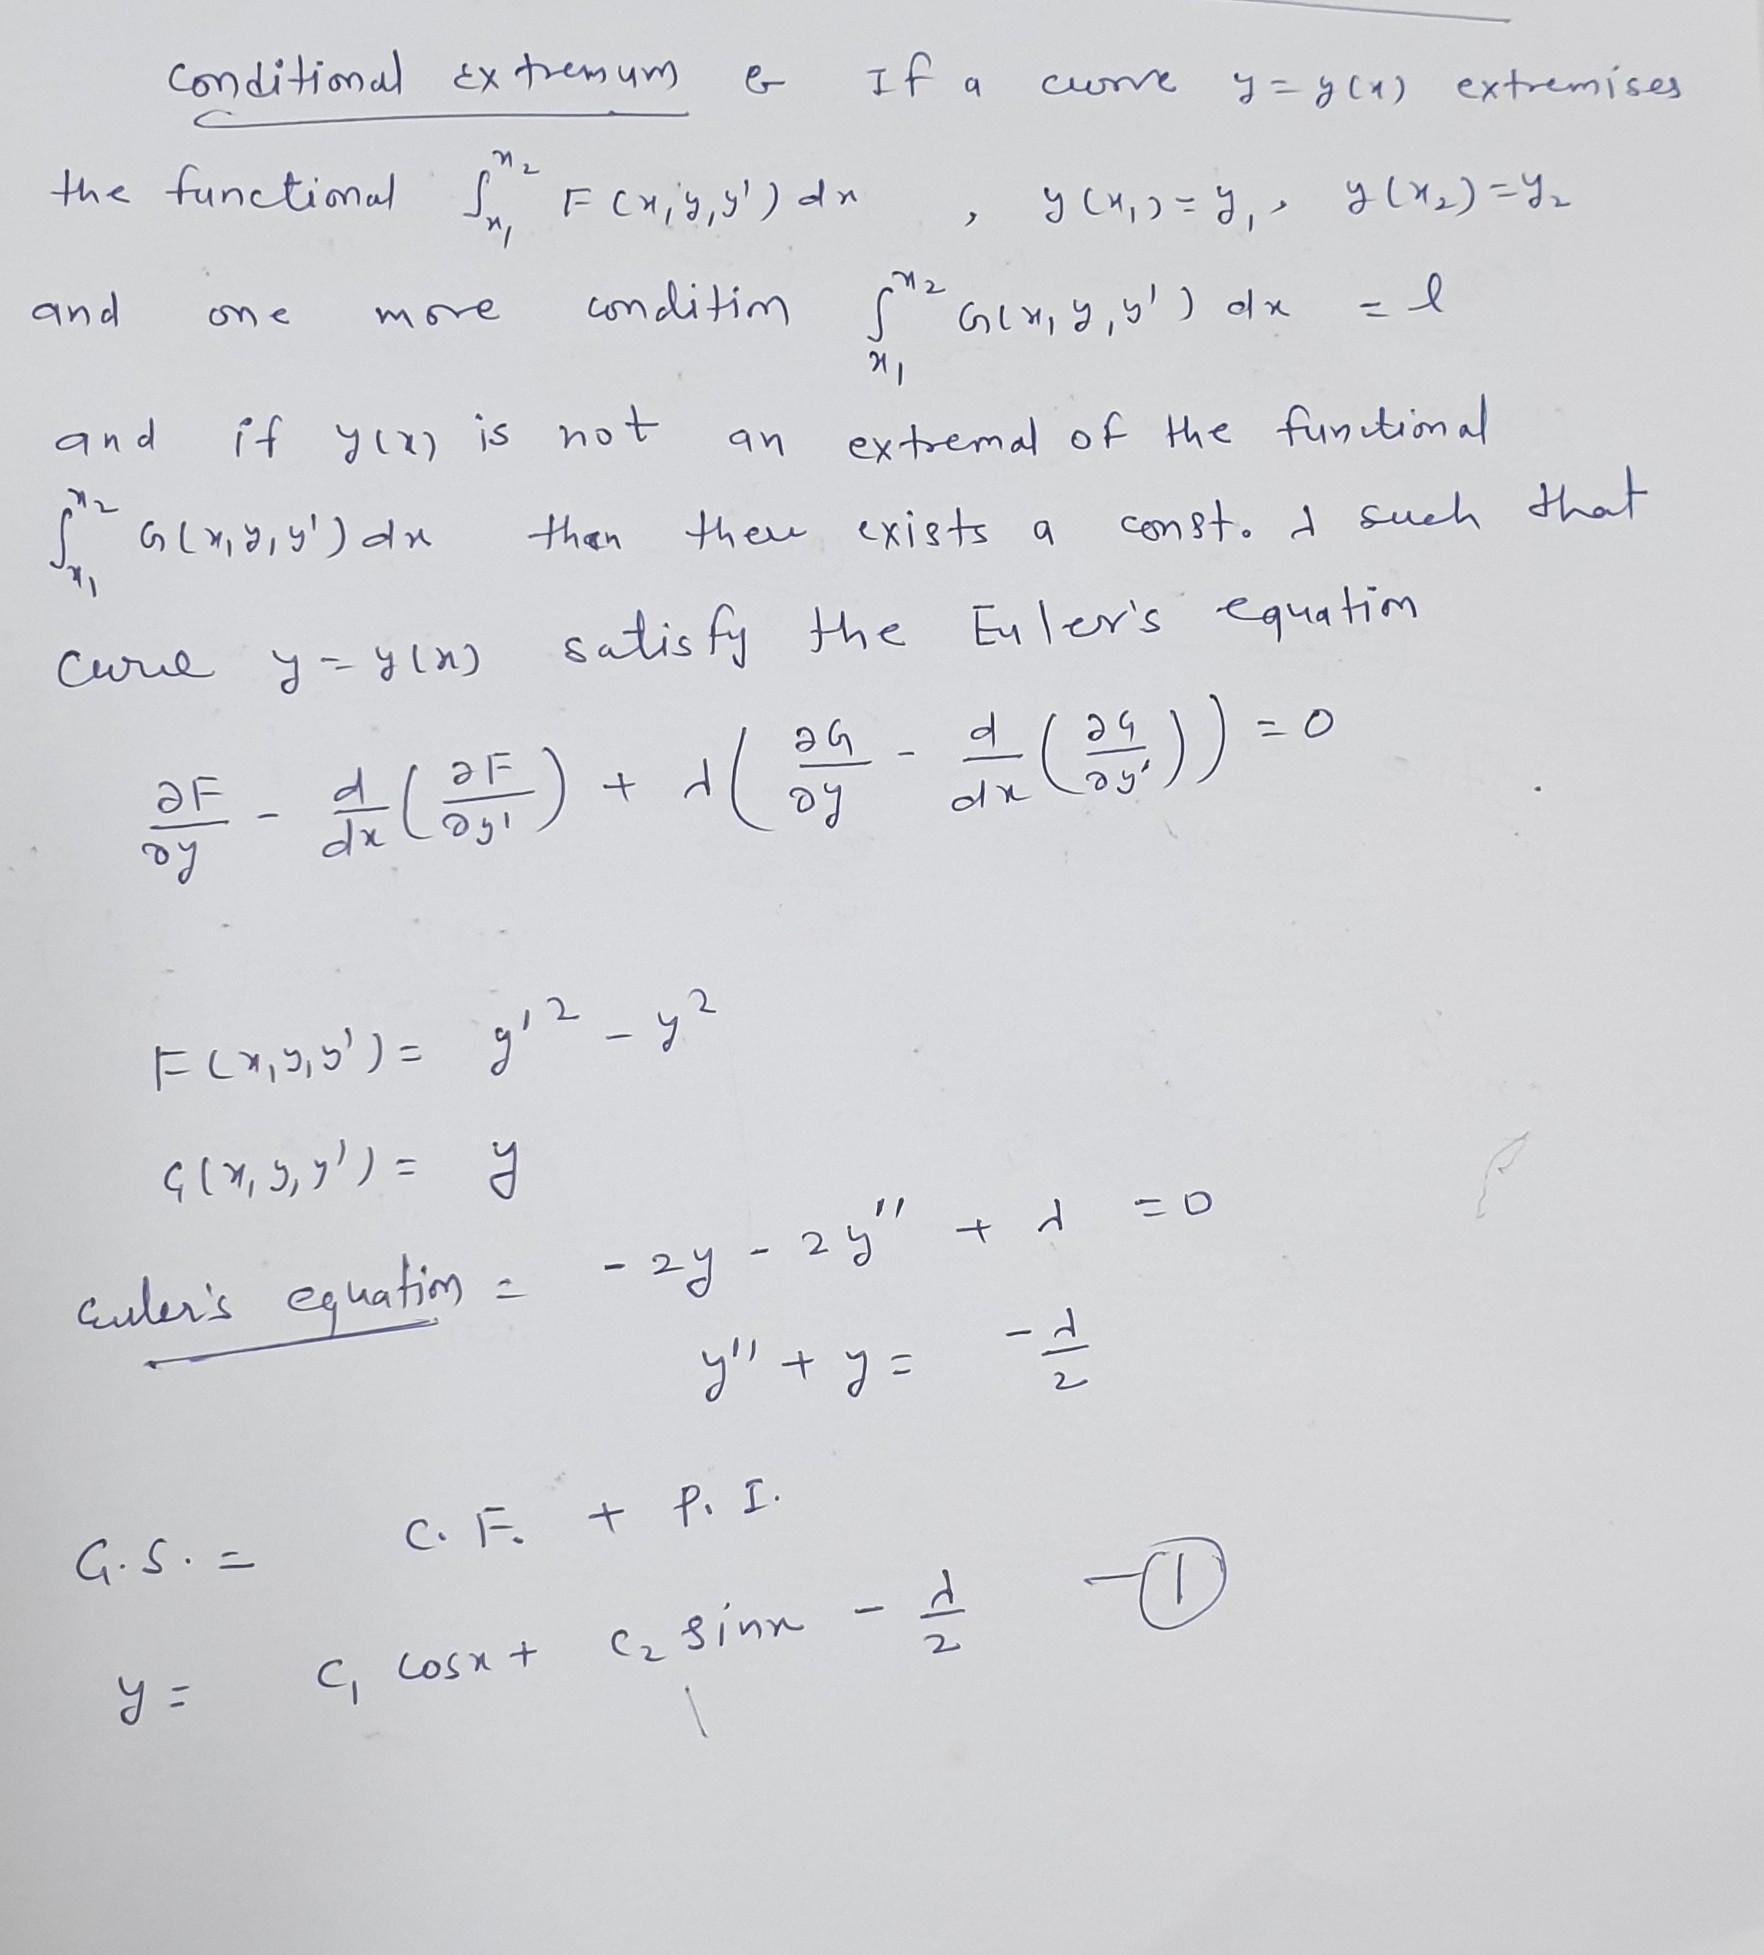 Conditional Extremum & If a curve y = y(x) extremises
the functional ∫_{x₁}^{x₂} F(x,y,y') dx , y(x₁) = y₁, y(x₂) = y₂
and one more condition ∫_{x₁}^{x₂} G(x,y,y') dx = l
and if y(x) is not an extremal of the functional
∫_{x₁}^{x₂} G(x,y,y') dx then there exists a const. λ such that
curve y = y(x) satisfy the Euler's equation
∂F/∂y - d/dx (∂F/∂y') + λ( ∂G/∂y - d/dx (∂G/∂y')) = 0
F(x,y,y') = y'² - y²
G(x,y,y') = y
Euler's equation = - 2y - 2y'' + λ = 0
y'' + y = -λ/2
G.S. = C.F. + P.I.
y = C₁ cosx + C₂ sinx - λ/2 -①